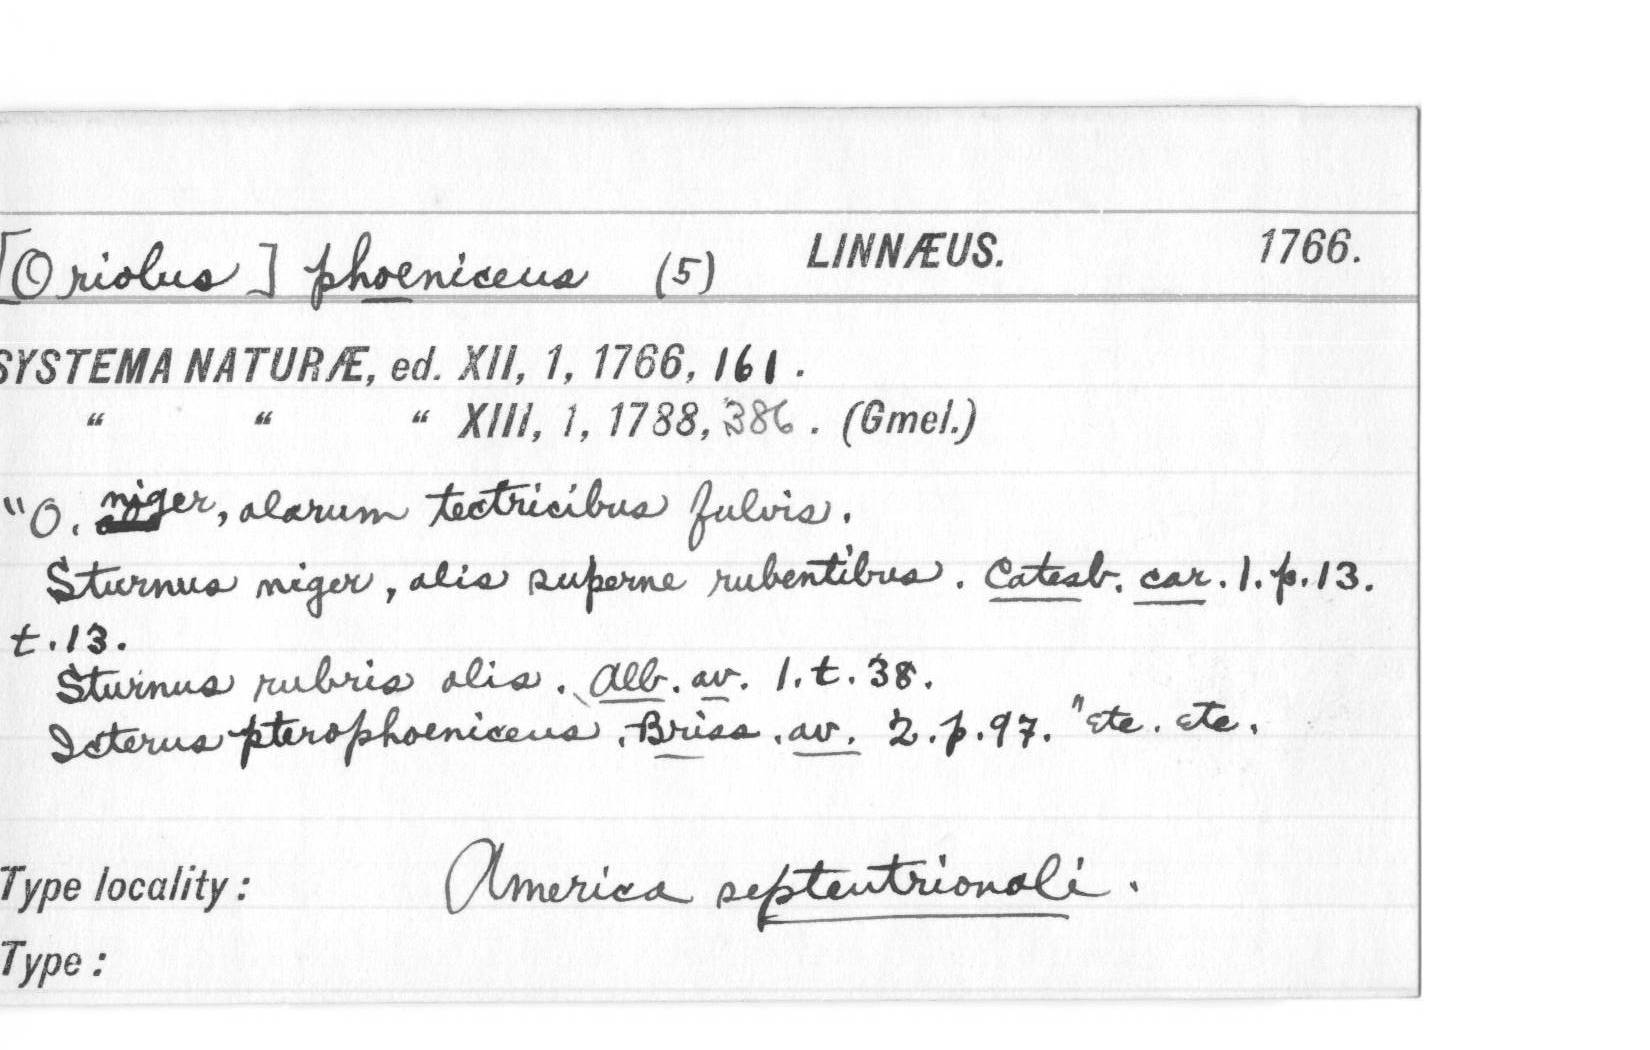 [Oriolus] phoeniceus (5) LINNÆUS. 1766.
SYSTEMA NATURÆ, ed. XII, 1, 1766, 161.
“ “ “ XIII, 1, 1788, 386. (Gmel.)
"O. niger, alarum tectricibus fulvis.
Sturnus niger, alis superne rubentibus. Catesb. car. 1. p. 13.
t. 13.
Sturnus rubris alis. Alb. av. 1. t. 38.
Icterus pterophoeniceus. Briss. av. 2. p. 97." etc. etc.
Type locality: America septentrionali.
Type: